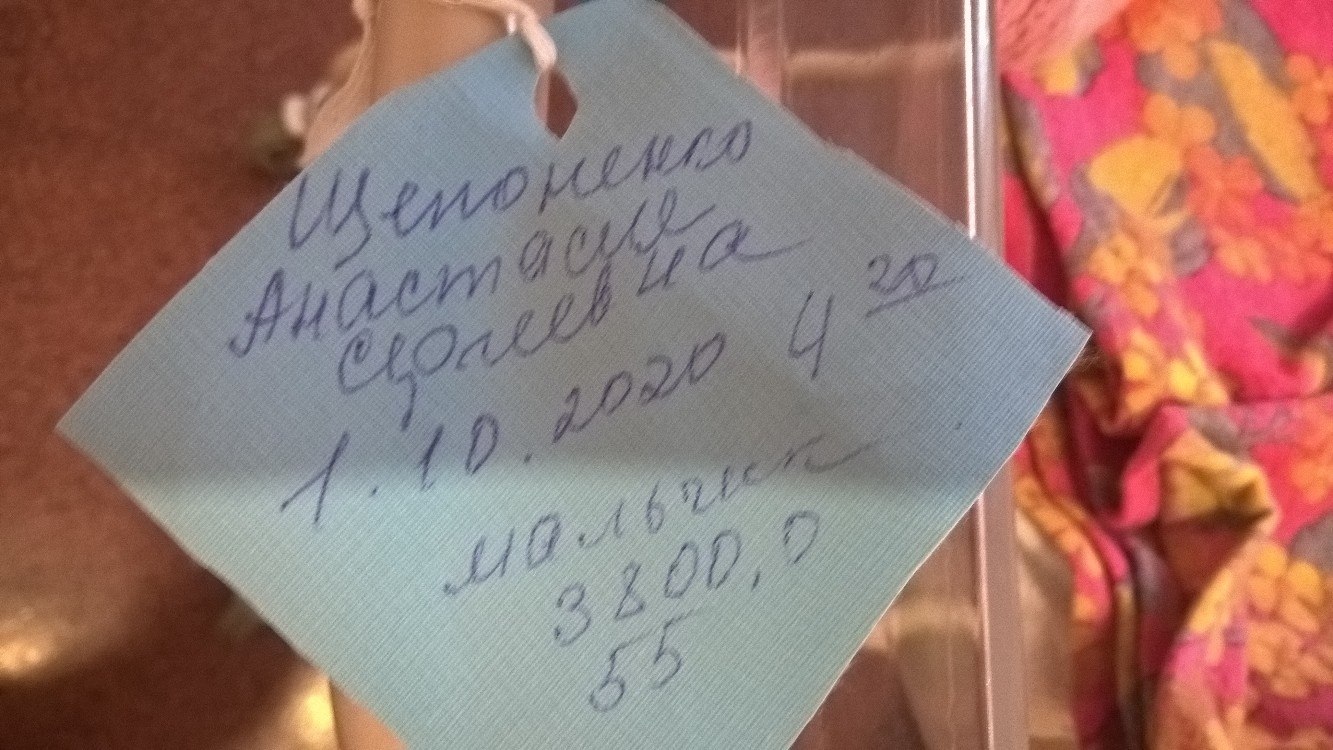 Щепоненко
Анастасия
1.10.2020 4 20
мальчик
3800,0
55